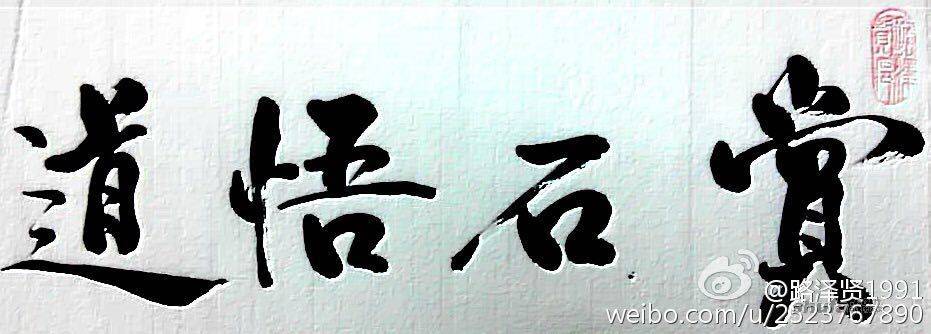 赏石悟道
@路泽贤1991
weibo.com/u/2523767890